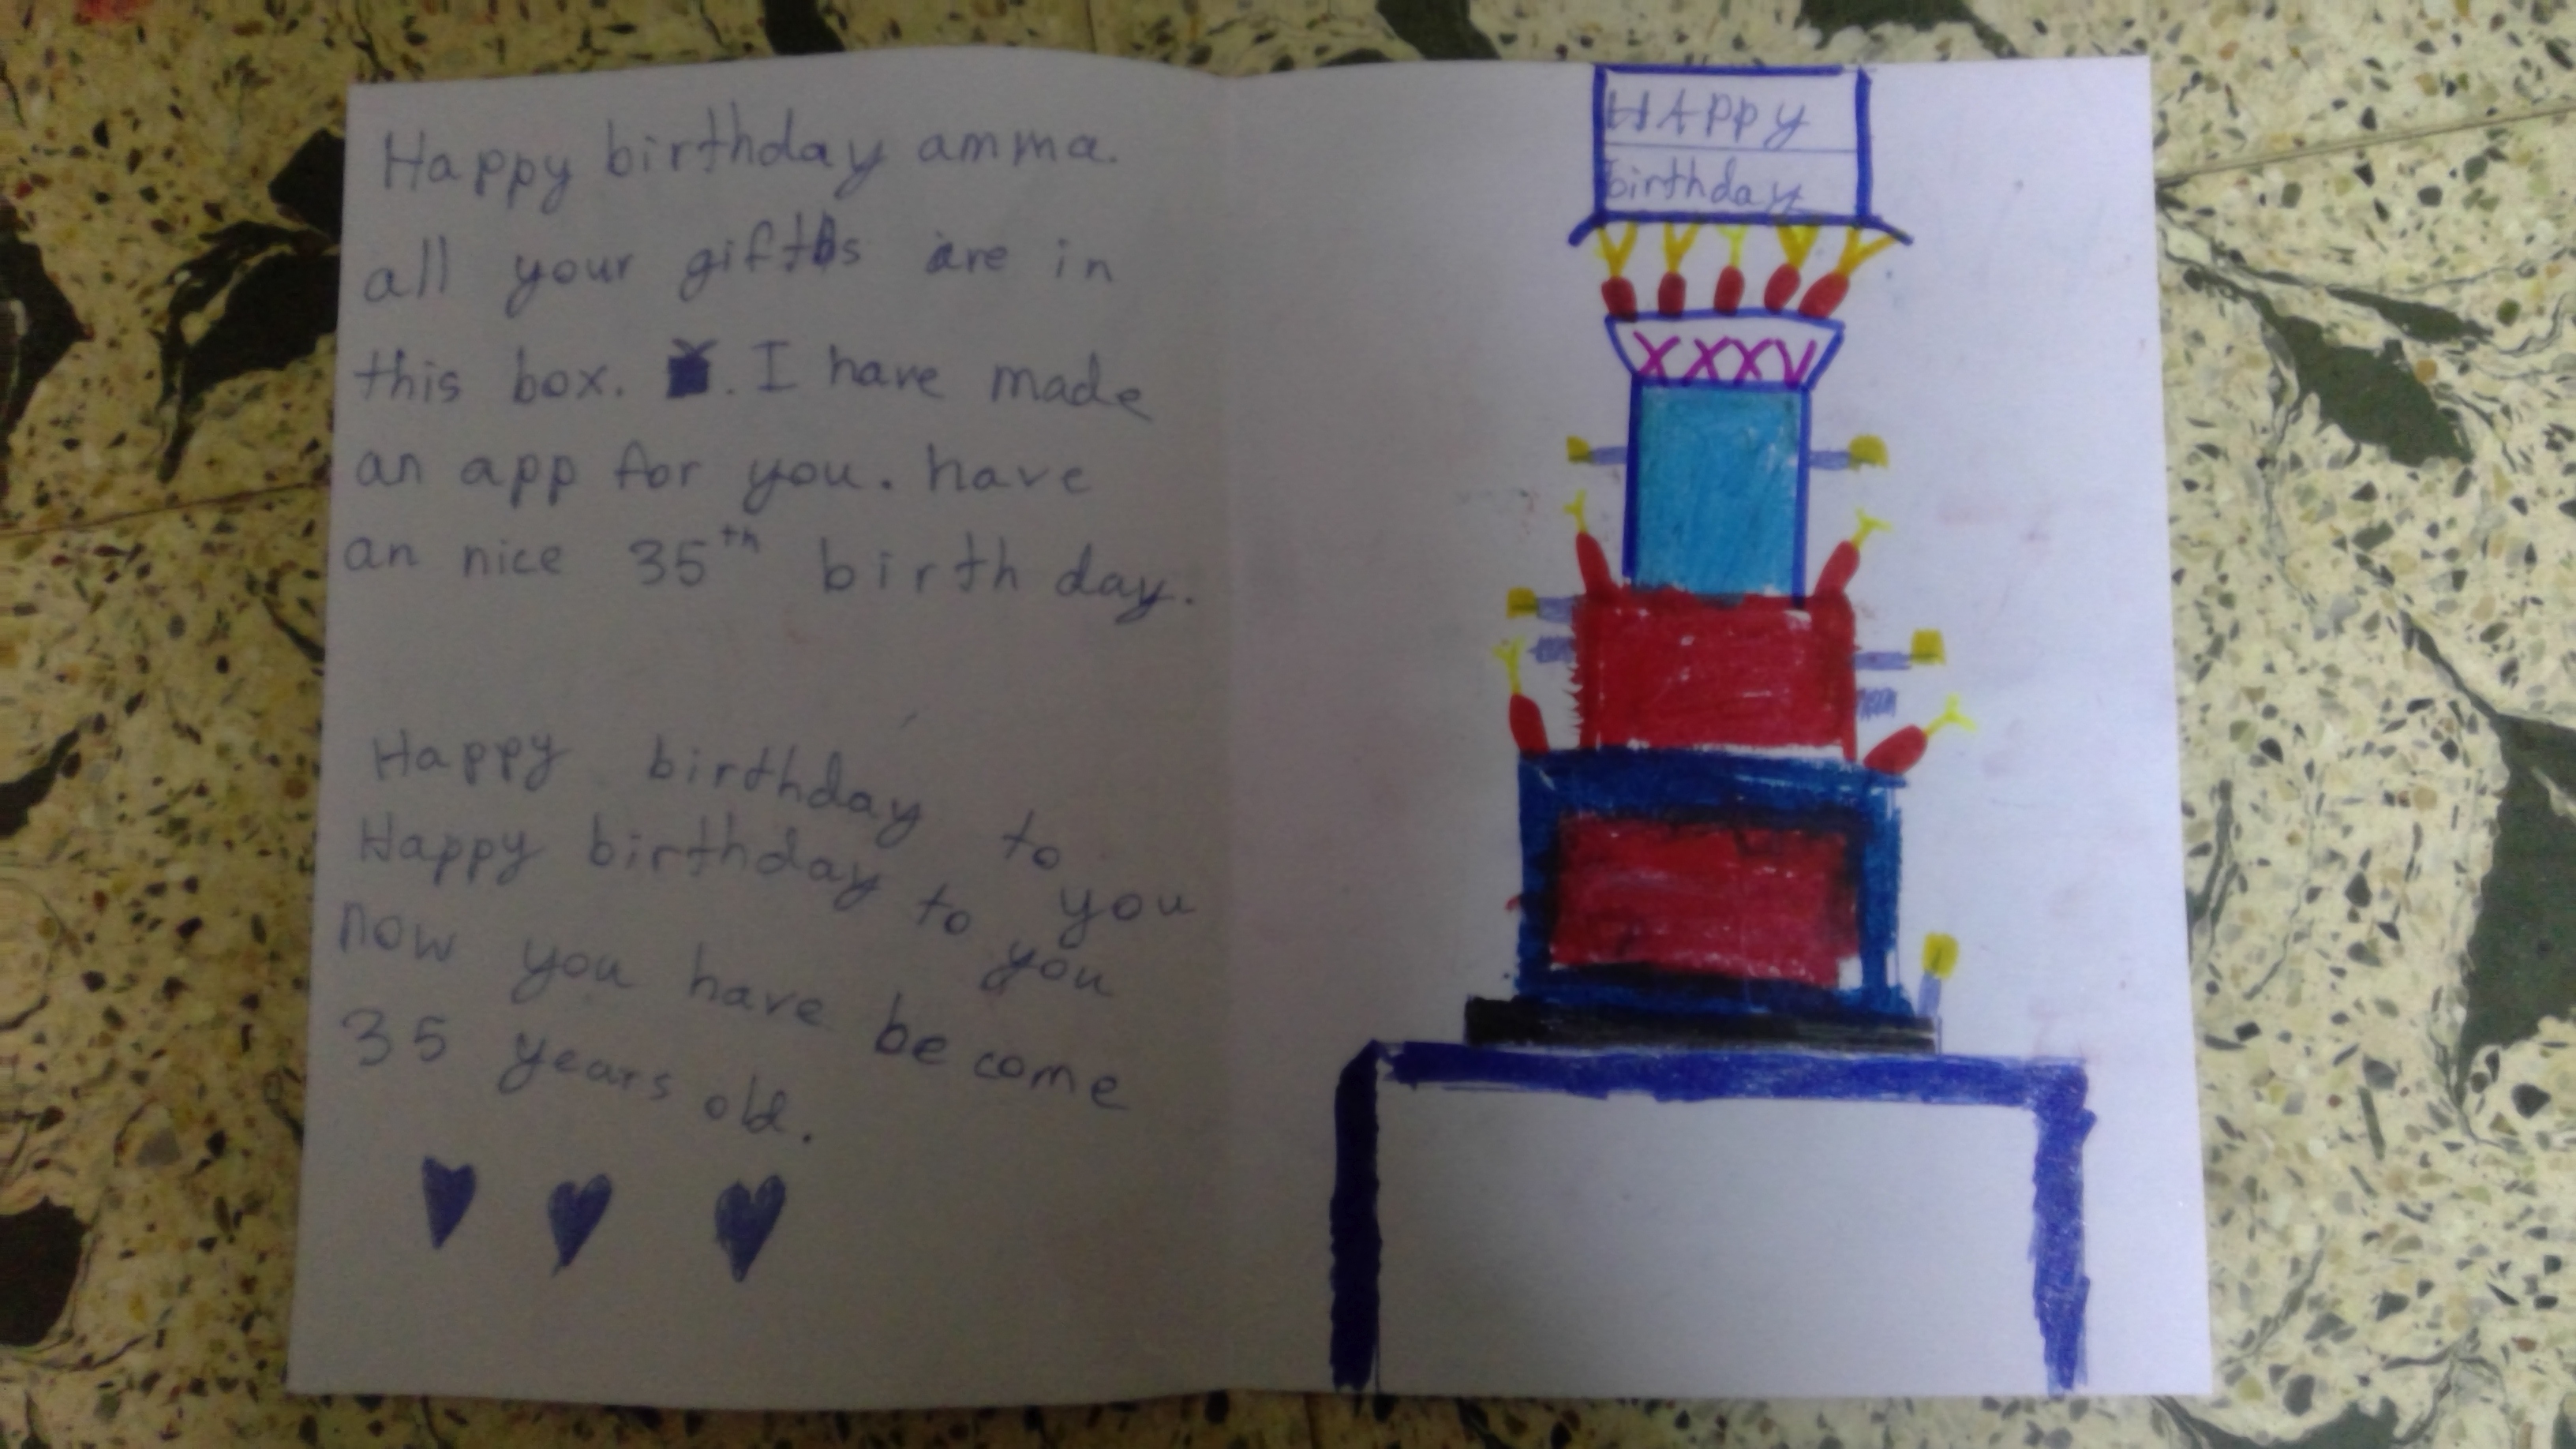 Happy birthday amma.
all your gifts are in
this box. . I have made
an app for you. have
an nice 35th birth day.
Happy birthday to you
Happy birthday to you
now you have be come
35 years old.
HAppy
birthday
XXXV